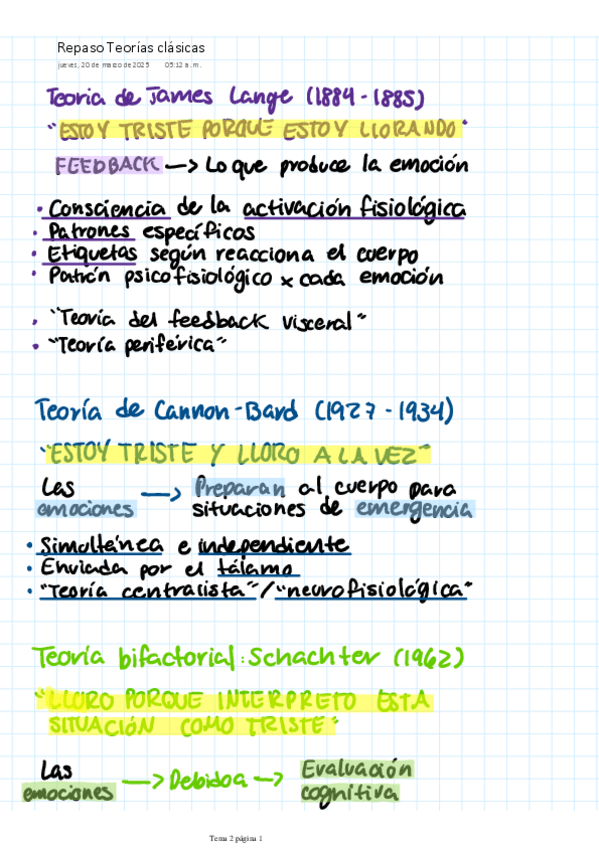 Repaso Teorías clásicas
jueves, 20 de marzo de 2025 05:12 a. m.
Teoria de James Lange (1884 - 1885)
"ESTOY TRISTE PORQUE ESTOY LLORANDO"
FEEDBACK —> Lo que produce la emoción
• Consciencia de la activación fisiológica
• Patrones específicos
• Etiquetas según reacciona el cuerpo
• Patrón psicofisiológico x cada emoción
• "Teoría del feedback visceral"
• "Teoría periférica"
Teoría de Cannon-Bard (1927 - 1934)
"ESTOY TRISTE Y LLORO A LA VEZ"
Las —> Preparan al cuerpo para
emociones situaciones de emergencia
• Simultánea e independiente
• Enviada por el tálamo
• "Teoría centralista" / "neurofisiológica"
Teoría bifactorial: Schachter (1962)
"LLORO PORQUE INTERPRETO ESTA
SITUACIÓN COMO TRISTE"
Las —> Debido a —> Evaluación
emociones cognitiva
Tema 2 página 1